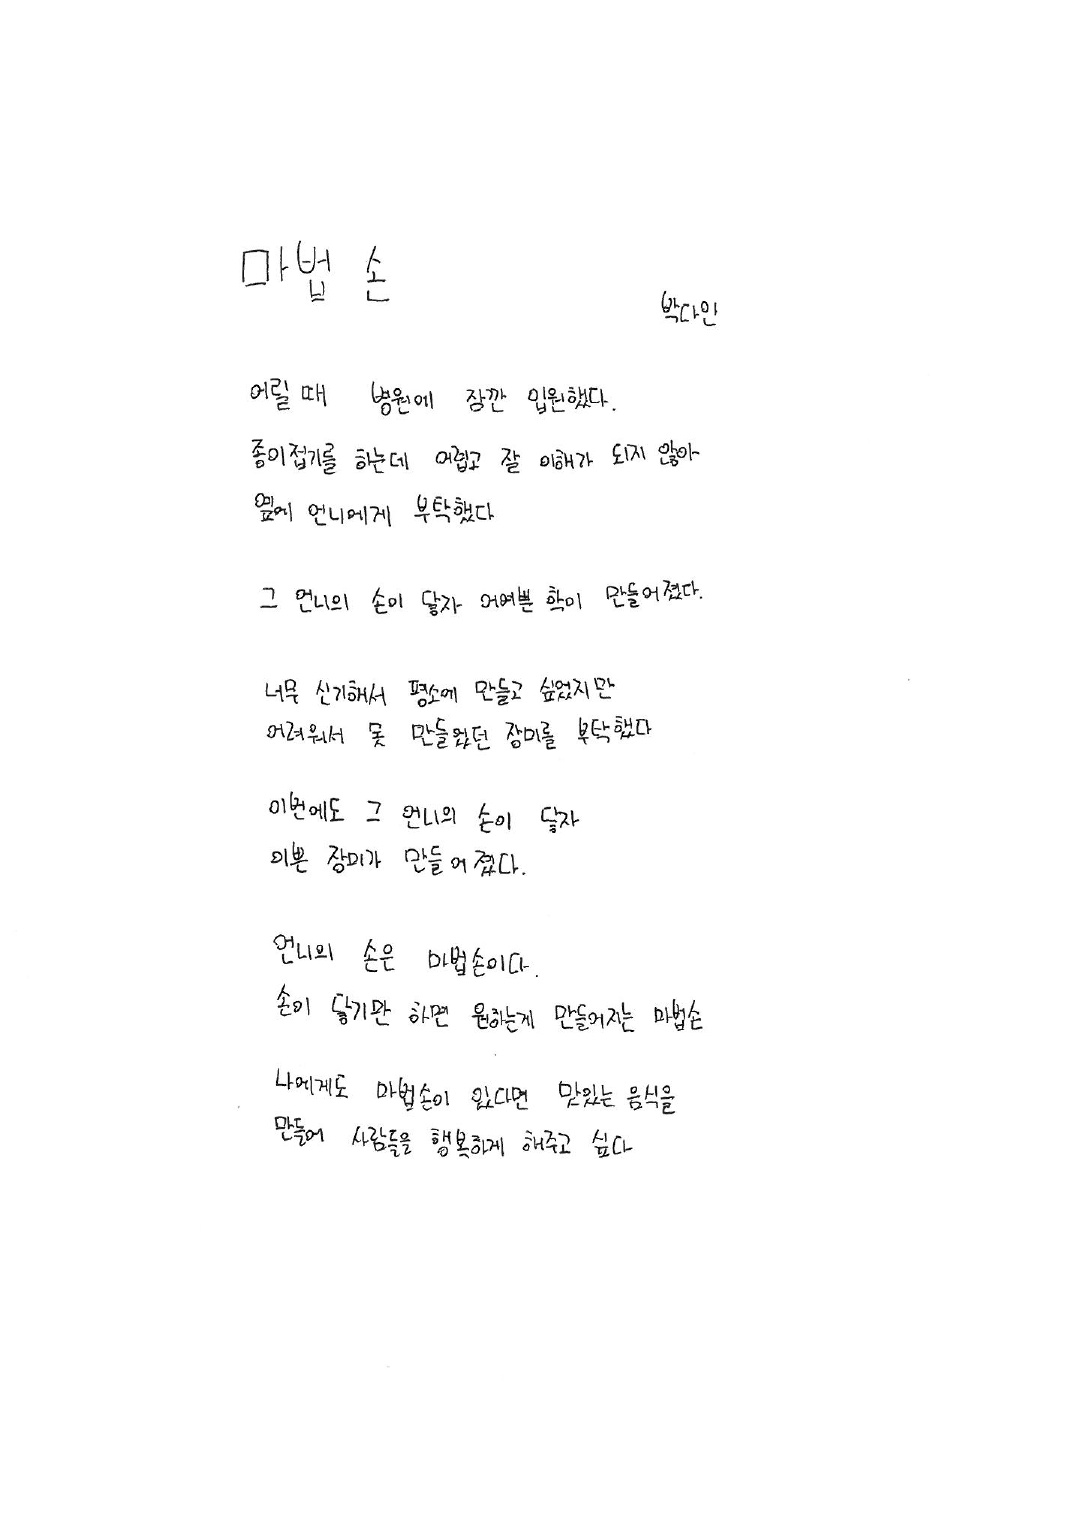 마법 손
박다인
어릴 때 병원에 잠깐 입원했다.
종이접기를 하는데 어렵고 잘 이해가 되지 않아
옆에 언니에게 부탁했다
그 언니의 손이 닿자 어여쁜 학이 만들어졌다.
너무 신기해서 평소에 만들고 싶었지만
어려워서 못 만들었던 장미를 부탁했다
이번에도 그 언니의 손이 닿자
이쁜 장미가 만들어졌다.
언니의 손은 마법손이다.
손이 닿기만 하면 원하는게 만들어지는 마법손
나에게도 마법손이 있다면 맛있는 음식을
만들어 사람들을 행복하게 해주고 싶다